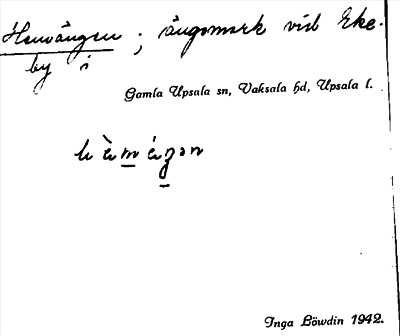 Hemängen; ängsmark vid Eke-
by i
Gamla Upsala sn, Vaksala hd, Upsala l.
Inga Löwdin 1942.